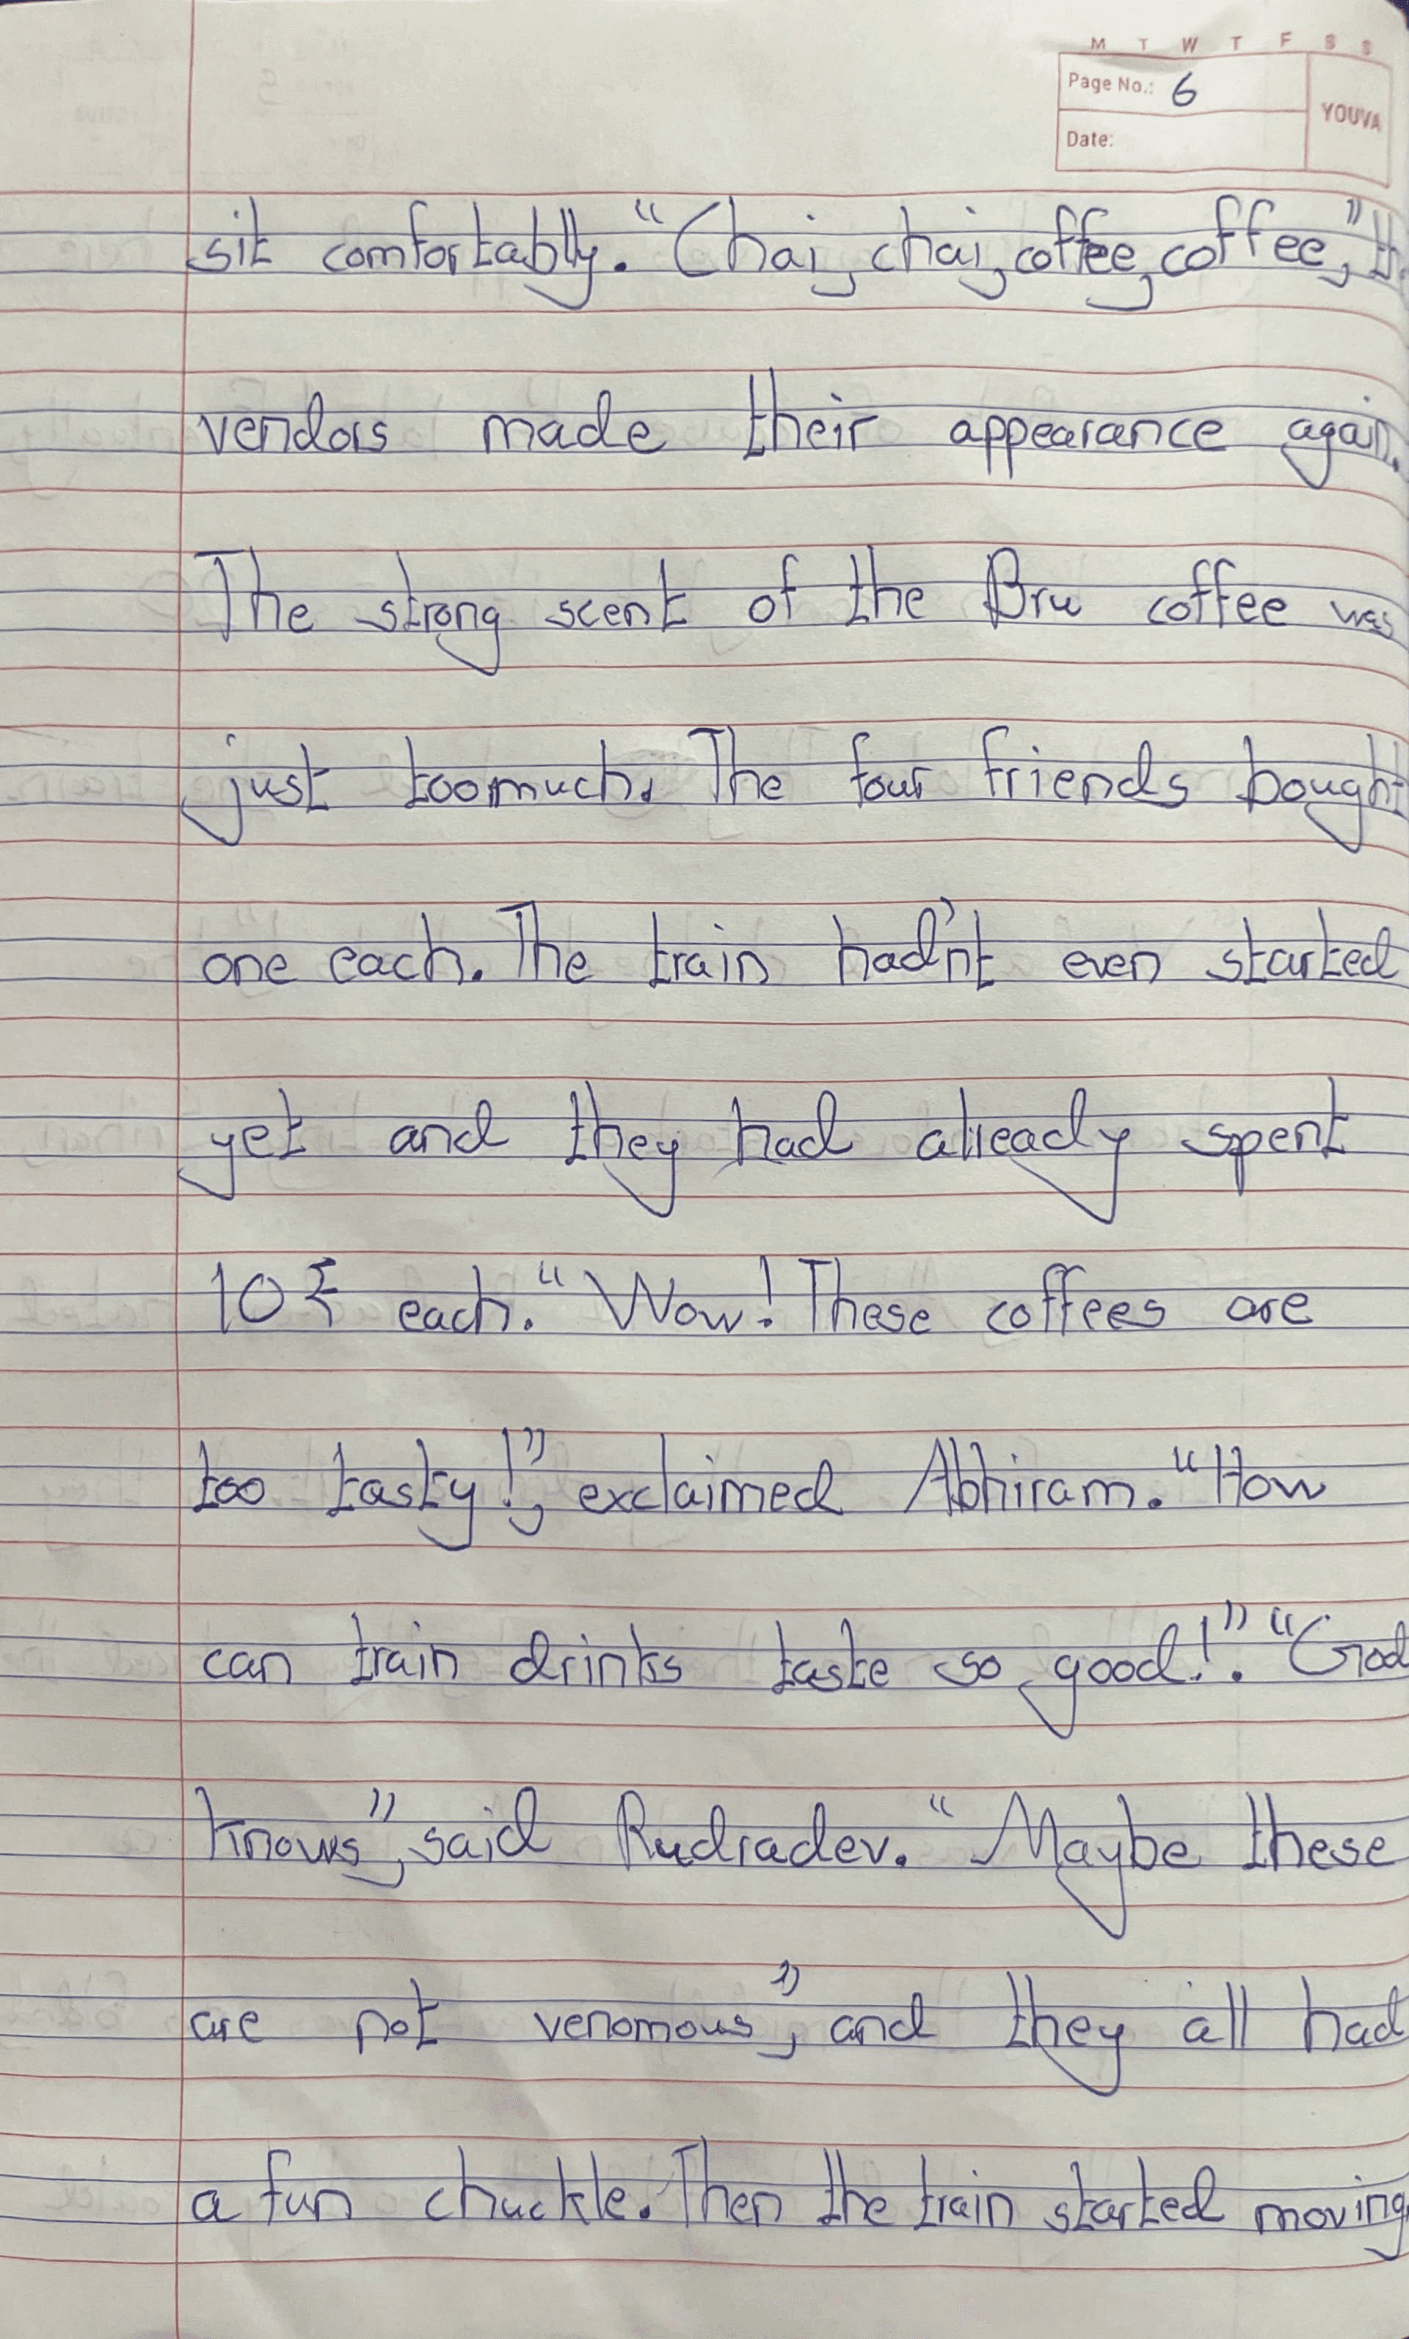 M T W T F S S
Page No.: 6
YOUVA
Date:
sit comfortably. "Chai, chai, coffee, coffee,"
vendors made their appearance again.
The strong scent of the Bru coffee was
just toomuch. The four friends bought
one each. The train hadn't even started
yet and they had already spent
10₹ each. "Wow! These coffees are
too tasty!", exclaimed Abhiram. "How
can train drinks taste so good!". "God
knows", said Rudradev. "Maybe these
are not venomous", and they all had
a fun chuckle. Then the train started moving